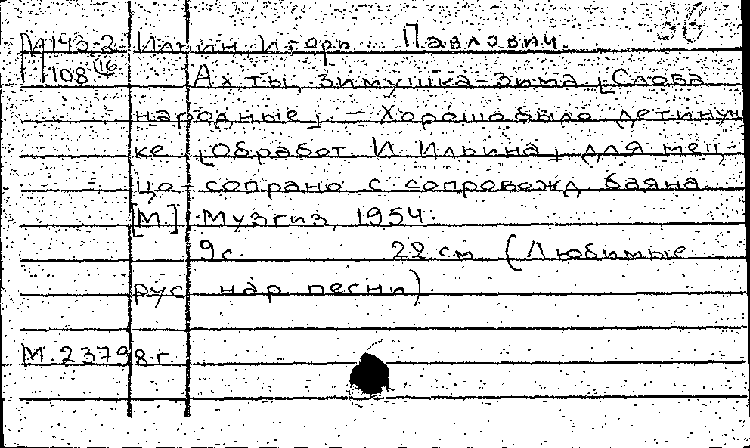 М143-2 Илюин, Игорь Павлович.
П 108 Ах ты, зимушка-зима [Слова
народные]. – Хорошо было детинуш
ке [Обработ И Ильина] для мец-
цо-сопрано с сопровожд баяна
[М.] Музгиз, 1954.
9 с. 22 см (Любимые
рус нар песни)
М.23798г